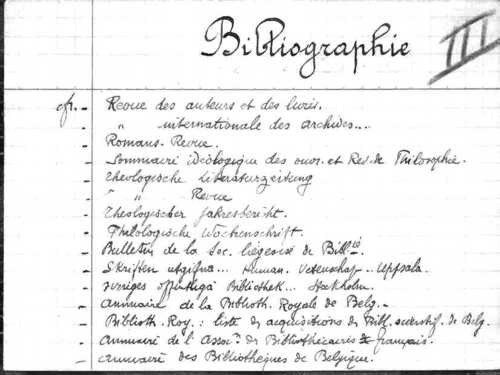 Bibliographie III
cfr. - Revue des auteurs et des livres.
- " internationale des archives...
- Romans-Revue.
- Sommaire idéologique des ouvr. et Rev. de Philosophie.
- Theologische Literaturzeitung
- " " Revue
- Theologischer Jahresbericht.
- Philologische Wochenschrift.
- Bulletin de la Soc. liégeoise de Bibl
- Skriften utgifna... Human. Vetenschap.. Uppsala.
- Sveriges offentliga Bibliothek... Stockholm.
- Annuaire de la Biblioth. Royale de Belg.
- Biblioth. Roy. : liste d. acquisitions de Bibl. scientif. de Belg.
- Annuaire de l'Assoc.ⁿ des Bibliothécaires français.
- Annuaire des Bibliothèques de Belgique.